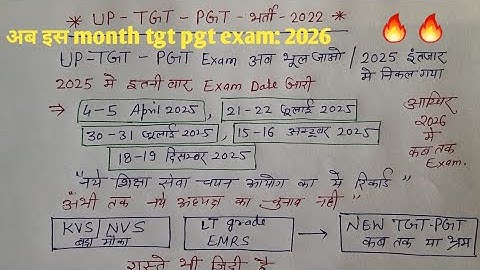 * UP - TGT - PGT - भर्ती - 2022 *
अब इस month tgt pgt exam: 2026
UP-TGT - PGT Exam अब भूल जाओ / 2025 इंतजार में निकल गया
2025 में इतनी बार Exam Date जारी
→ 4-5 April 2025, 21-22 जुलाई 2025
30-31 जुलाई 2025, 15-16 अक्टूबर 2025
18-19 दिसम्बर 2025
आखिर 2026 में कब तक Exam.
"नये शिक्षा सेवा चयन आयोग का ये रिकार्ड"
अभी तक नये अध्यक्ष का चुनाव नहीं"
KVS/NVS बड़ा मौका
LT grade EMRS
→ NEW TGT-PGT कब तक या भ्रम
रास्ते भी जिद्दी है